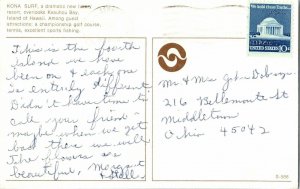 KONA SURF, a dramatic new
resort, overlooks Keauhou Bay,
Island of Hawaii. Among guest
attractions: a championship golf course,
tennis, excellent sports fishing.
This is the fourth
island we have
been on & each one
is entirely different.
Didn't have time to
call your friend -
maybe when we get
back there we will.
The flowers are
beautiful, Margaret
Mr & Mrs John
216 Bellemonte St
Middletown
Ohio 45042
10c